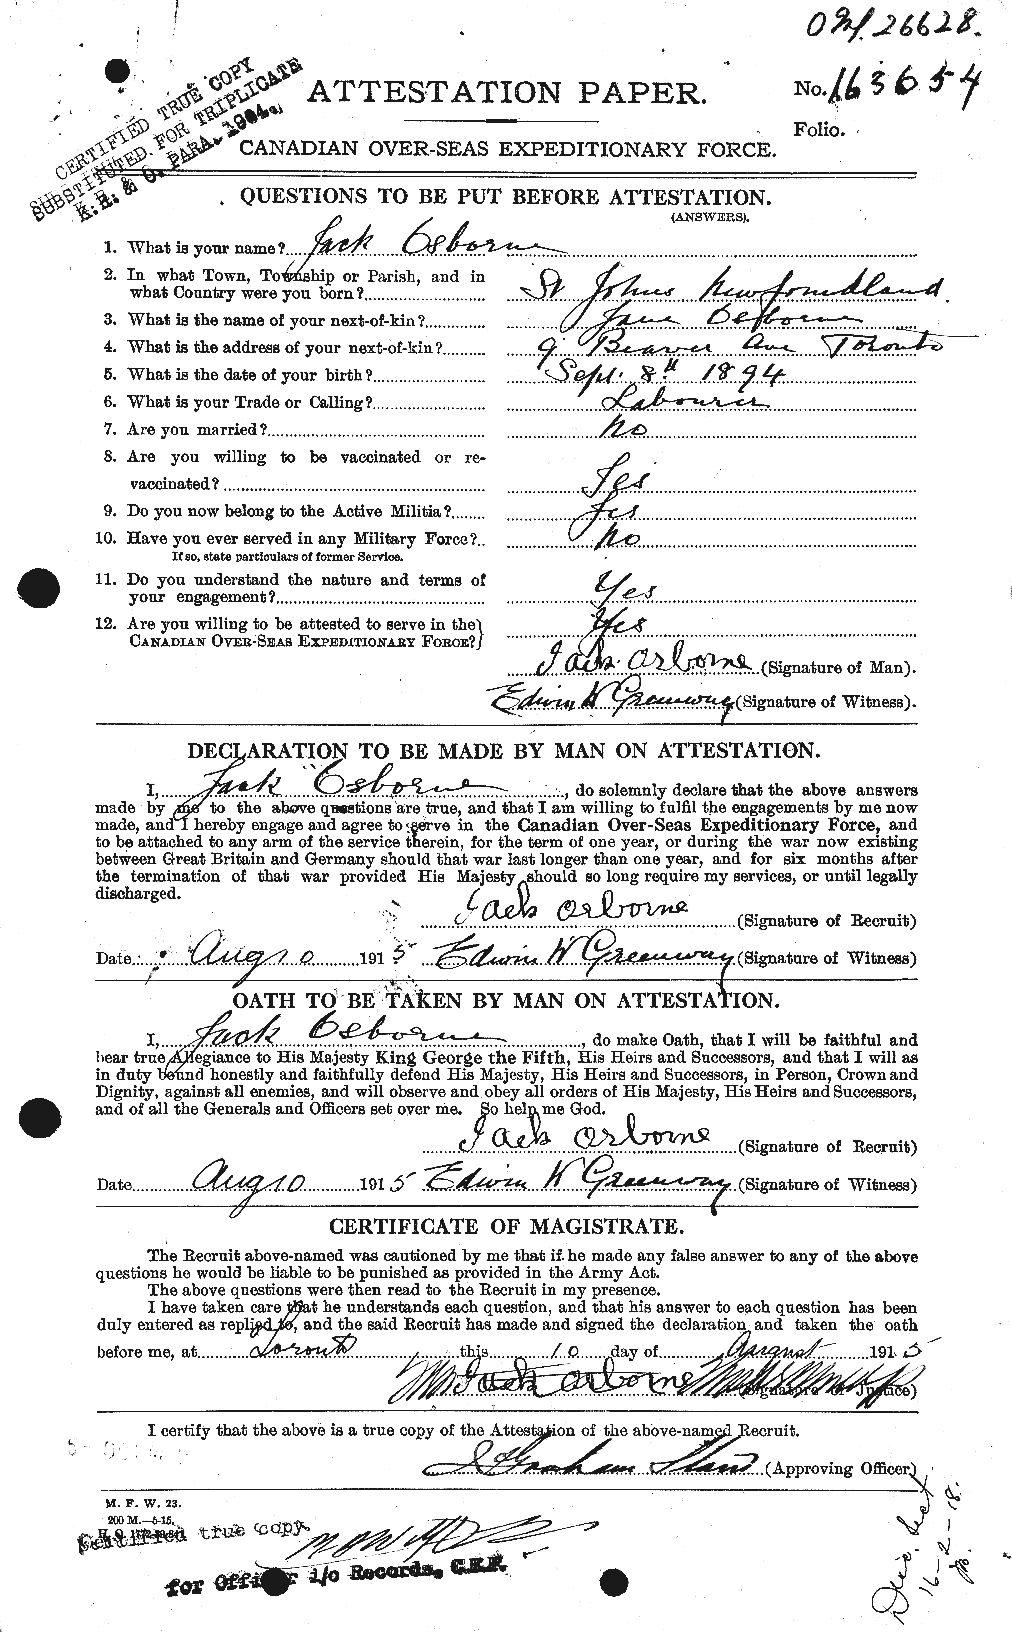 26628.
CERTIFIED TRUE COPY
SUBSTITUTED FOR TRIPLICATE
K. R. & O. PARA. 1904.
ATTESTATION PAPER.
No. 163654
Folio.
CANADIAN OVER-SEAS EXPEDITIONARY FORCE.
QUESTIONS TO BE PUT BEFORE ATTESTATION.
(ANSWERS).
1. What is your name? Jack Osborne
2. In what Town, Township or Parish, and in
what Country were you born? St Johns Newfoundland.
3. What is the name of your next-of-kin? Jane Osborne
4. What is the address of your next-of-kin? 9 Beaver Ave Toronto
5. What is the date of your birth? Sept. 8th 1894
6. What is your Trade or Calling? Labourer
7. Are you married? No
8. Are you willing to be vaccinated or re-
vaccinated? Yes
9. Do you now belong to the Active Militia? Yes
10. Have you ever served in any Military Force? No
If so, state particulars of former Service.
11. Do you understand the nature and terms of
your engagement? Yes
12. Are you willing to be attested to serve in the
CANADIAN OVER-SEAS EXPEDITIONARY FORCE? Yes
Jack Osborne (Signature of Man).
Edwin W Greenway (Signature of Witness).
DECLARATION TO BE MADE BY MAN ON ATTESTATION.
I, Jack Osborne, do solemnly declare that the above answers
made by me to the above questions are true, and that I am willing to fulfil the engagements by me now
made, and I hereby engage and agree to serve in the Canadian Over-Seas Expeditionary Force, and
to be attached to any arm of the service therein, for the term of one year, or during the war now existing
between Great Britain and Germany should that war last longer than one year, and for six months after
the termination of that war provided His Majesty should so long require my services, or until legally
discharged.
Jack Osborne (Signature of Recruit)
Date Aug 10 1915 Edwin W Greenway (Signature of Witness)
OATH TO BE TAKEN BY MAN ON ATTESTATION.
I, Jack Osborne, do make Oath, that I will be faithful and
bear true Allegiance to His Majesty King George the Fifth, His Heirs and Successors, and that I will as
in duty bound honestly and faithfully defend His Majesty, His Heirs and Successors, in Person, Crown and
Dignity, against all enemies, and will observe and obey all orders of His Majesty, His Heirs and Successors,
and of all the Generals and Officers set over me. So help me God.
Jack Osborne (Signature of Recruit)
Date Aug 10 1915 Edwin W Greenway (Signature of Witness)
CERTIFICATE OF MAGISTRATE.
The Recruit above-named was cautioned by me that if he made any false answer to any of the above
questions he would be liable to be punished as provided in the Army Act.
The above questions were then read to the Recruit in my presence.
I have taken care that he understands each question, and that his answer to each question has been
duly entered as replied to, and the said Recruit has made and signed the declaration and taken the oath
before me, at Toronto this 10 day of August 1915
Jack Osborne (Signature of Justice)
I certify that the above is a true copy of the Attestation of the above-named Recruit.
Graham (Approving Officer)
M. F. W. 23.
200 M.—6-15.
Certified true copy
for Officer i/o Records, C.E.F.
16-2-18.